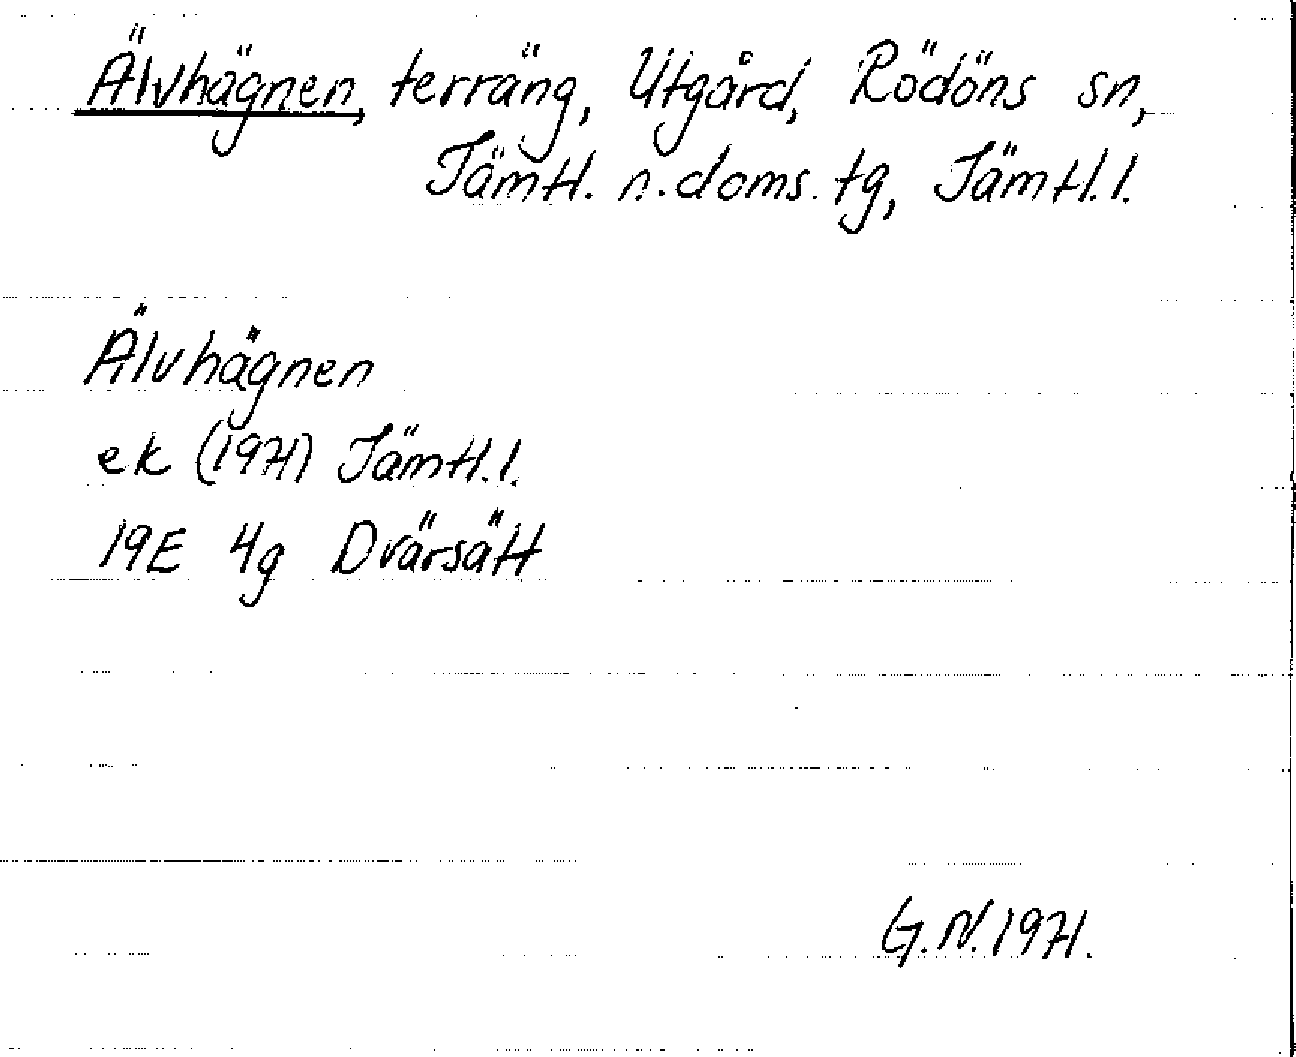 Älvhägnen, terräng, Utgård, Rödöns sn,
Jämtl. n. doms. tg, Jämtl. l.
Älvhägnen
ek (1971) Jämtl. l.
19E 4g Dvärsätt
G. N. 1971.